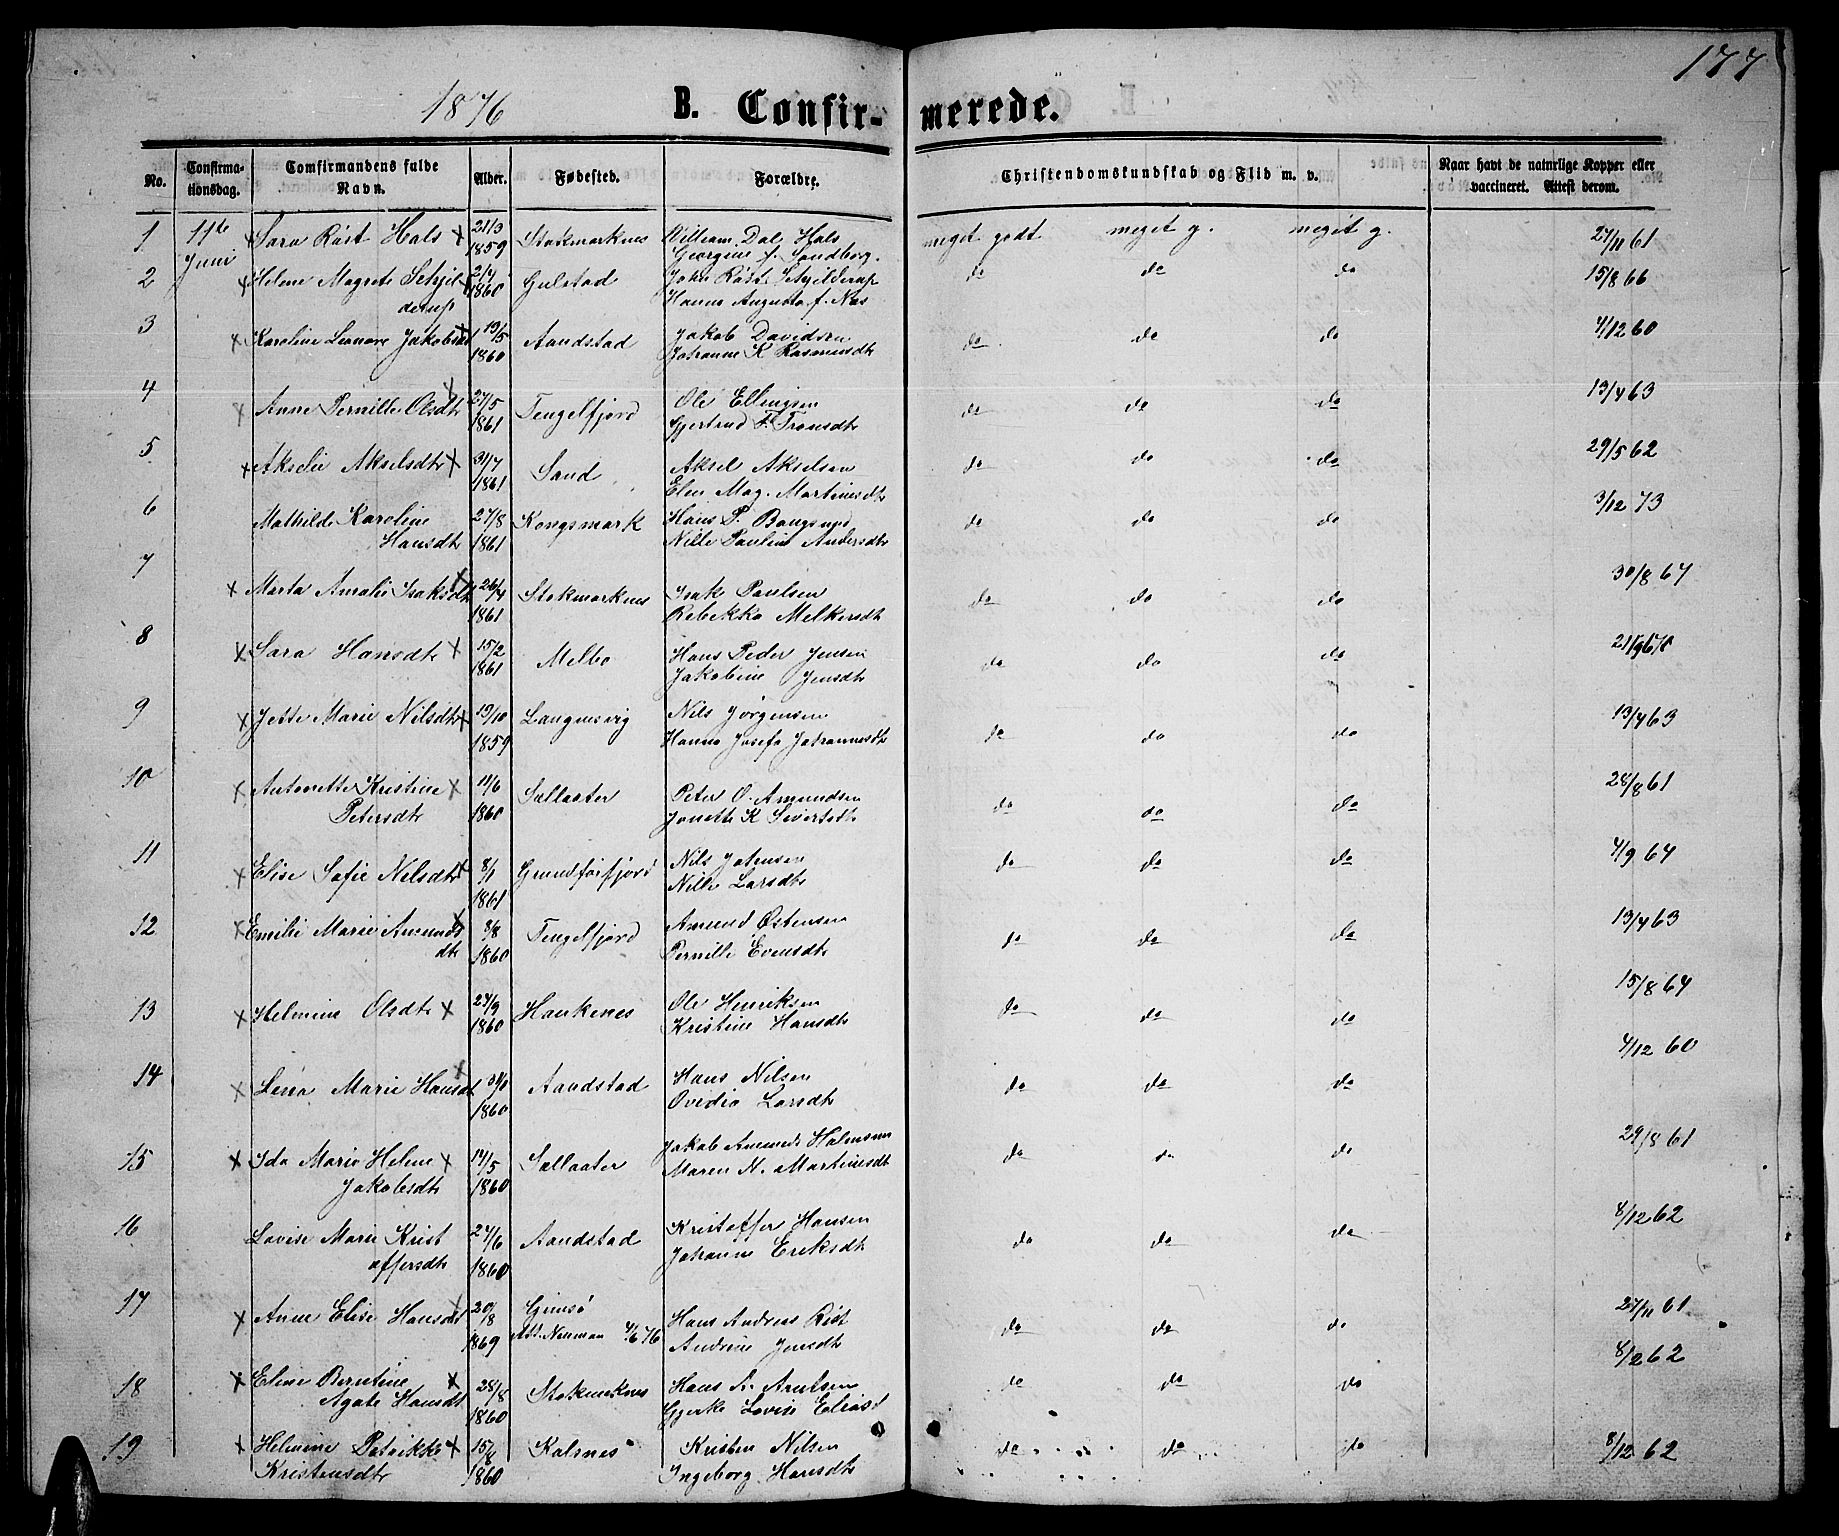 177
1876 B. Confirmerede.
No. Confirmationsdag. Comfirmandens fulde Navn. Alder. Fødested. Forældre. Christendomskundskab og Flid m. v. Naar havt de naturlige Kopper eller vaccineret. Attest derom.
1 11te Juni × Sara Röst Hals × 21/3 1859 Stokmarknes William Dal Hals meget godt meget g. meget g. 27/11 61
Georgine f. Sandberg.
2 × Helene Magrete Schjel- 1860 Gulstad John Röst Schjelderup do do do 15/8 66
derup Hanna Augusta f. Næs
3 × Karoline Leonore Jakobsd × 19/5 1860 Aandstad Jakob Davidsen do do do 4/12 60
Johanne K Rasmusdtr
4 × Anne Pernille Olsdtr × 27/5 1861 Tengelfjord Ole Ellingsen do do do 13/4 63
Gjertrud F. Tronsdtr
5 × Akselie Akselsdtr × 31/7 1861 Sand Aksel Akselsen do do do 29/5 62
Elen Mag. Martinusdtr
6 Mathilde Karoline 27/8 1861 Kongsmark Hans P. Bangsund do do do 3/12 73
Hansdtr Nille Pauline Andersdtr
7 × Marta Amalie Isaksdtr × 26/4 1861 Stokmarknes Isak Paulsen do do do 30/8 67
Rebekka Melkersdtr
8 × Sara Hansdtr × 15/2 1861 Melbo Hans Peder Jensen do do do
Jakobine Jensdtr
9 × Jette Marie Nilsdtr × 19/10 1859 Langensvig Nils Jörgensen do do do 13/4 63
Hanna Josefa Johannesdtr
10 × Antonette Kristine × 11/6 1860 Sallaater Peter O. Amundsen do do do 28/8 61
Petersdtr Jonette K Sivertsdtr
11 × Elise Sofie Nilsdtr × 8/1 1861 Grundförfjord Nils Johnsen do do do 4/9 64
Nille Larsdtr
12 × Emilie Marie Amunds × 8/8 1860 Tengelfjord Amund Østensen do do do 13/4 63
dtr Pernille Evensdtr
13 × Helmine Olsdtr × 24/9 1860 Haukenes Ole Henriksen do do do 15/8 64
Kristine Hansdtr
14 × Lena Marie Hansdt × 1860 Aandstad Hans Nilsen do do do 4/12 60
Ovedia Larsdtr
15 × Ida Marie Helene × 14/5 1860 Sallaater Jakob Amunds Halensen do do do 29/8 61
Jakobsdtr Maren N. Martinusdt
16 Lovise Marie Krist 24/6 1860 Aandstad Kristoffer Hansen do do do 8/12 62
offersdtr Johanne Eriksdtr
17 × Anne Elise Hansdt × 20/8 1869 Gimsö Hans Andreas Röst do do do 27/11 61
Att. Neuman 4/6 76 Andrine Jensdtr
18 × Eline Berntine × 28/8 1860 Stokmeknes Hans A. Arntsen do do do 8/2 62
Agate Hansdt Gjerke Lovise Eliasd
19 × Helmine Patrikke × 15/8 1860 Kalsnes Kristen Nilsen do do do 8/12 62
Kristensdtr Ingeborg Hansdtr